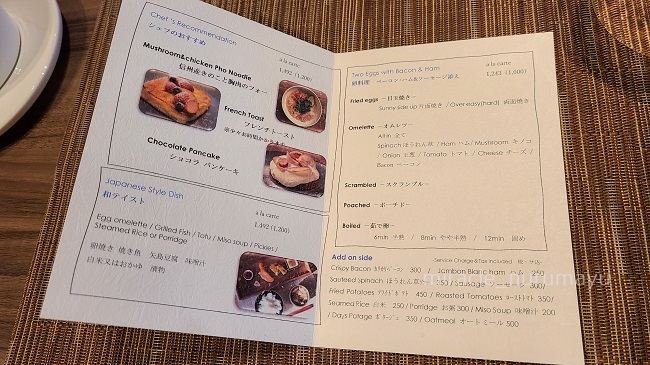 Chef 's Recommendation
シェフのおすすめ
a la carte
1,492 (1,200)
Mushroom&chicken Pho Noodle
信州産きのこと胸肉のフォー
French Toast
フレンチトースト
Chocolate Pancake
ショコラ パンケーキ
Japanese Style Dish
和テイスト
a la carte
1,492 (1,200)
Egg omelette / Grilled Fish / Tofu / Miso soup / Pickles /
Steamed Rice or Porridge
卵焼き 焼き魚 矢島豆腐 味噌汁
白米又はおかゆ 漬物
Two Eggs with Bacon & Ham
卵料理 ベーコンハム&ソーセージ添え
a la carte
1,243 (1,000)
Fried eggs －目玉焼き－
Sunny side up 片面焼き / Overeasy(hard) 両面焼き
Omelette －オムレツ－
All in 全て
Spinach ほうれん草 / Ham ハム/ Mushroom キノコ
/ Onion 玉葱 / Tomato トマト / Cheese チーズ /
Bacon ベーコン
Scrambled －スクランブル－
Poached －ポーチド－
Boiled －茹で卵－
6min 半熟 / 8min やや半熟 / 12min 固め
Add on side
Service Charge&Tax Included 税・サ込
Crispy Bacon 300 / Jambon Blanc ham ハム 250
Sauteed Spinach ほうれん草 350 / Sausage ソーセージ 300/
Fried Potatoes フライドポテト 450 / Roasted Tomatoes ローストトマト 350/
Seamed Rice 白米 250 / Porridge お粥 300 / Miso Soup 味噌汁 200
/ Days Potage ポタージュ 350 / Oatmeal オートミール 500